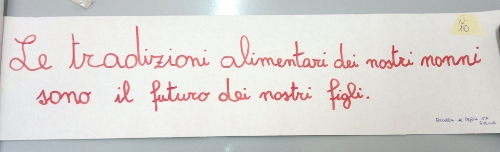 N°
10
Le tradizioni alimentari dei nostri nonni
sono il futuro dei nostri figli.